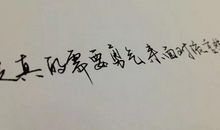 真的需要勇气来面对